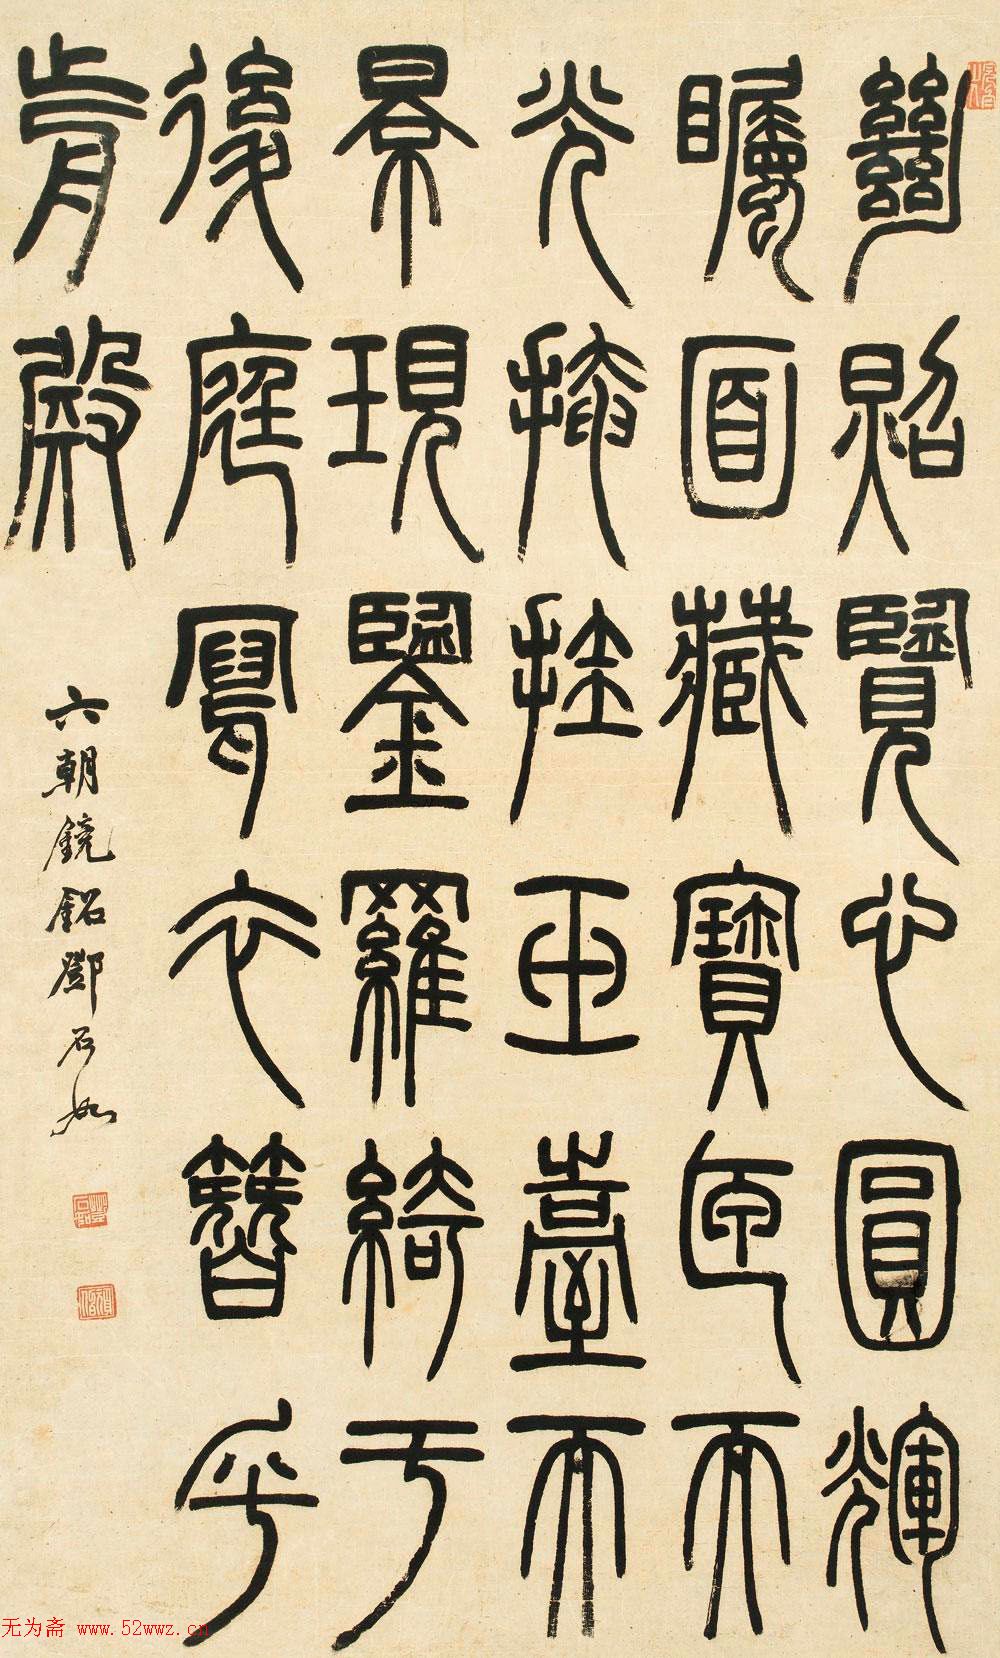 絕照覽心圓輝
矚面藏寶匣而
光掩挂玉臺而
景現鑒羅綺于
後庭寫衣簪乎
前殿
六朝鏡銘鄧石如
无为斋 www.52wwz.cn